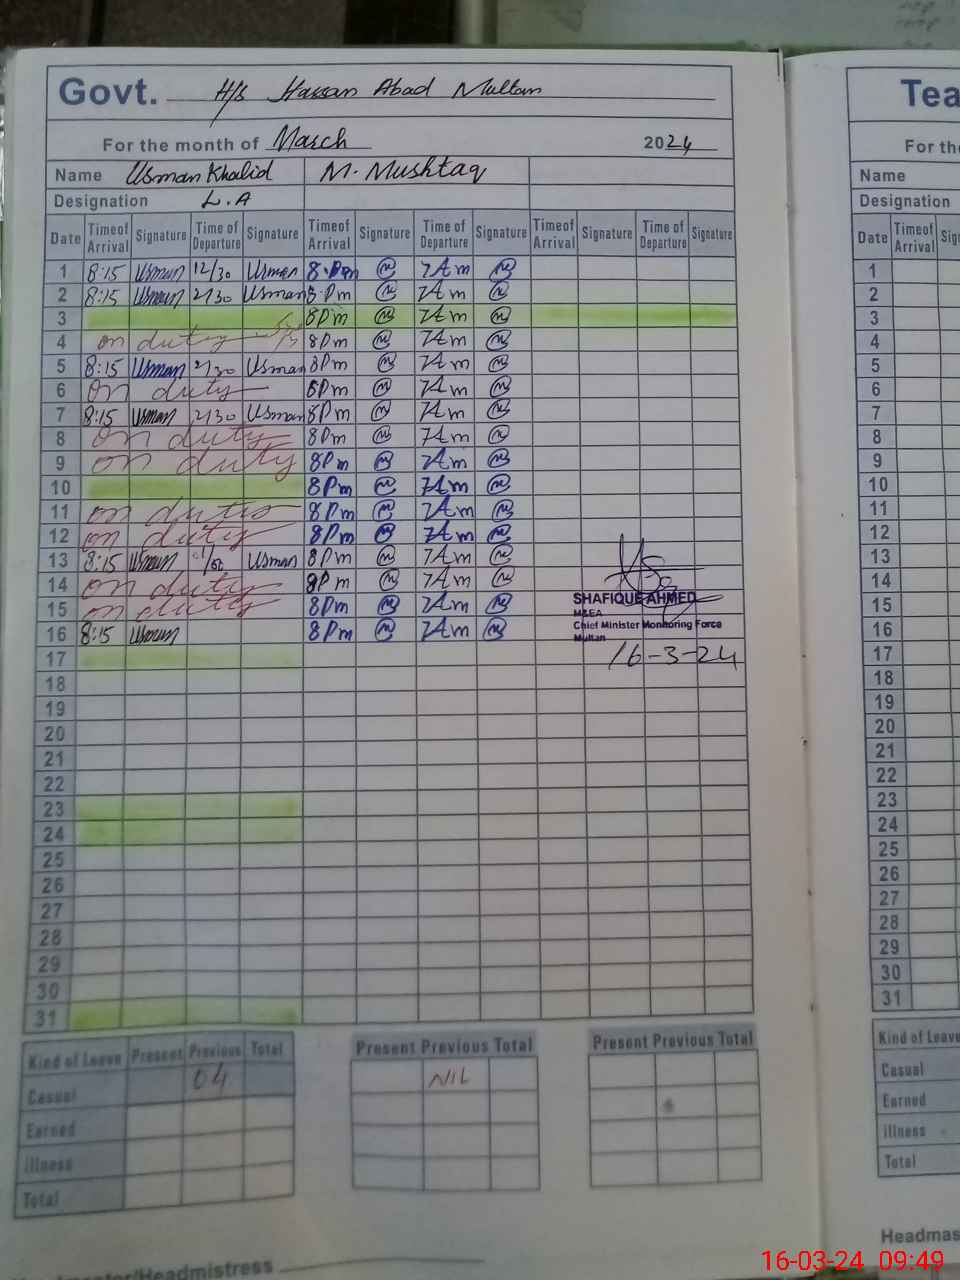 Govt. H/S Hassan Abad Multan
For the month of March 2024
Name Usman Khalid M. Mushtaq
Designation L.A
Date Timeof Arrival Signature Time of Departure Signature Timeof Arrival Signature Time of Departure Signature Timeof Arrival Signature Time of Departure Signature
1 8:15 Usman 12/30 Usman 8.Pm 7Am
2 8:15 Usman 2/30 Usman 8Pm 7Am
3 8Pm 7Am
4 on duty 8Pm 7Am
5 8:15 Usman 2/30 Usman 8Pm 7Am
6 on duty 8Pm 7Am
7 8:15 Usman 2/30 Usman 8Pm 7Am
8 on duty 8Pm 7Am
9 on duty 8Pm 7Am
10 8Pm 7Am
11 on duty 8Pm 7Am
12 on duty 8Pm 7Am
13 8:15 Usman Usman 8Pm 7Am
14 on duty 8Pm 7Am
15 on duty 8Pm 7Am
16 8:15 Usman 8Pm 7Am
SHAFIQUE AHMED
M&EA
Chief Minister Monitoring Force
Multan
16-3-24
17
18
19
20
21
22
23
24
25
26
27
28
29
30
31
Kind of Leave Present Previous Total Present Previous Total Present Previous Total
Casual 04 NIL
Earned
illness
Total
Headmistress
Tea
For th
Name
Designation
Date Timeof Arrival Sig
1
2
3
4
5
6
7
8
9
10
11
12
13
14
15
16
17
18
19
20
21
22
23
24
25
26
27
28
29
30
31
Kind of Leave
Casual
Earned
illness
Total
Headmas
16-03-24 09:49